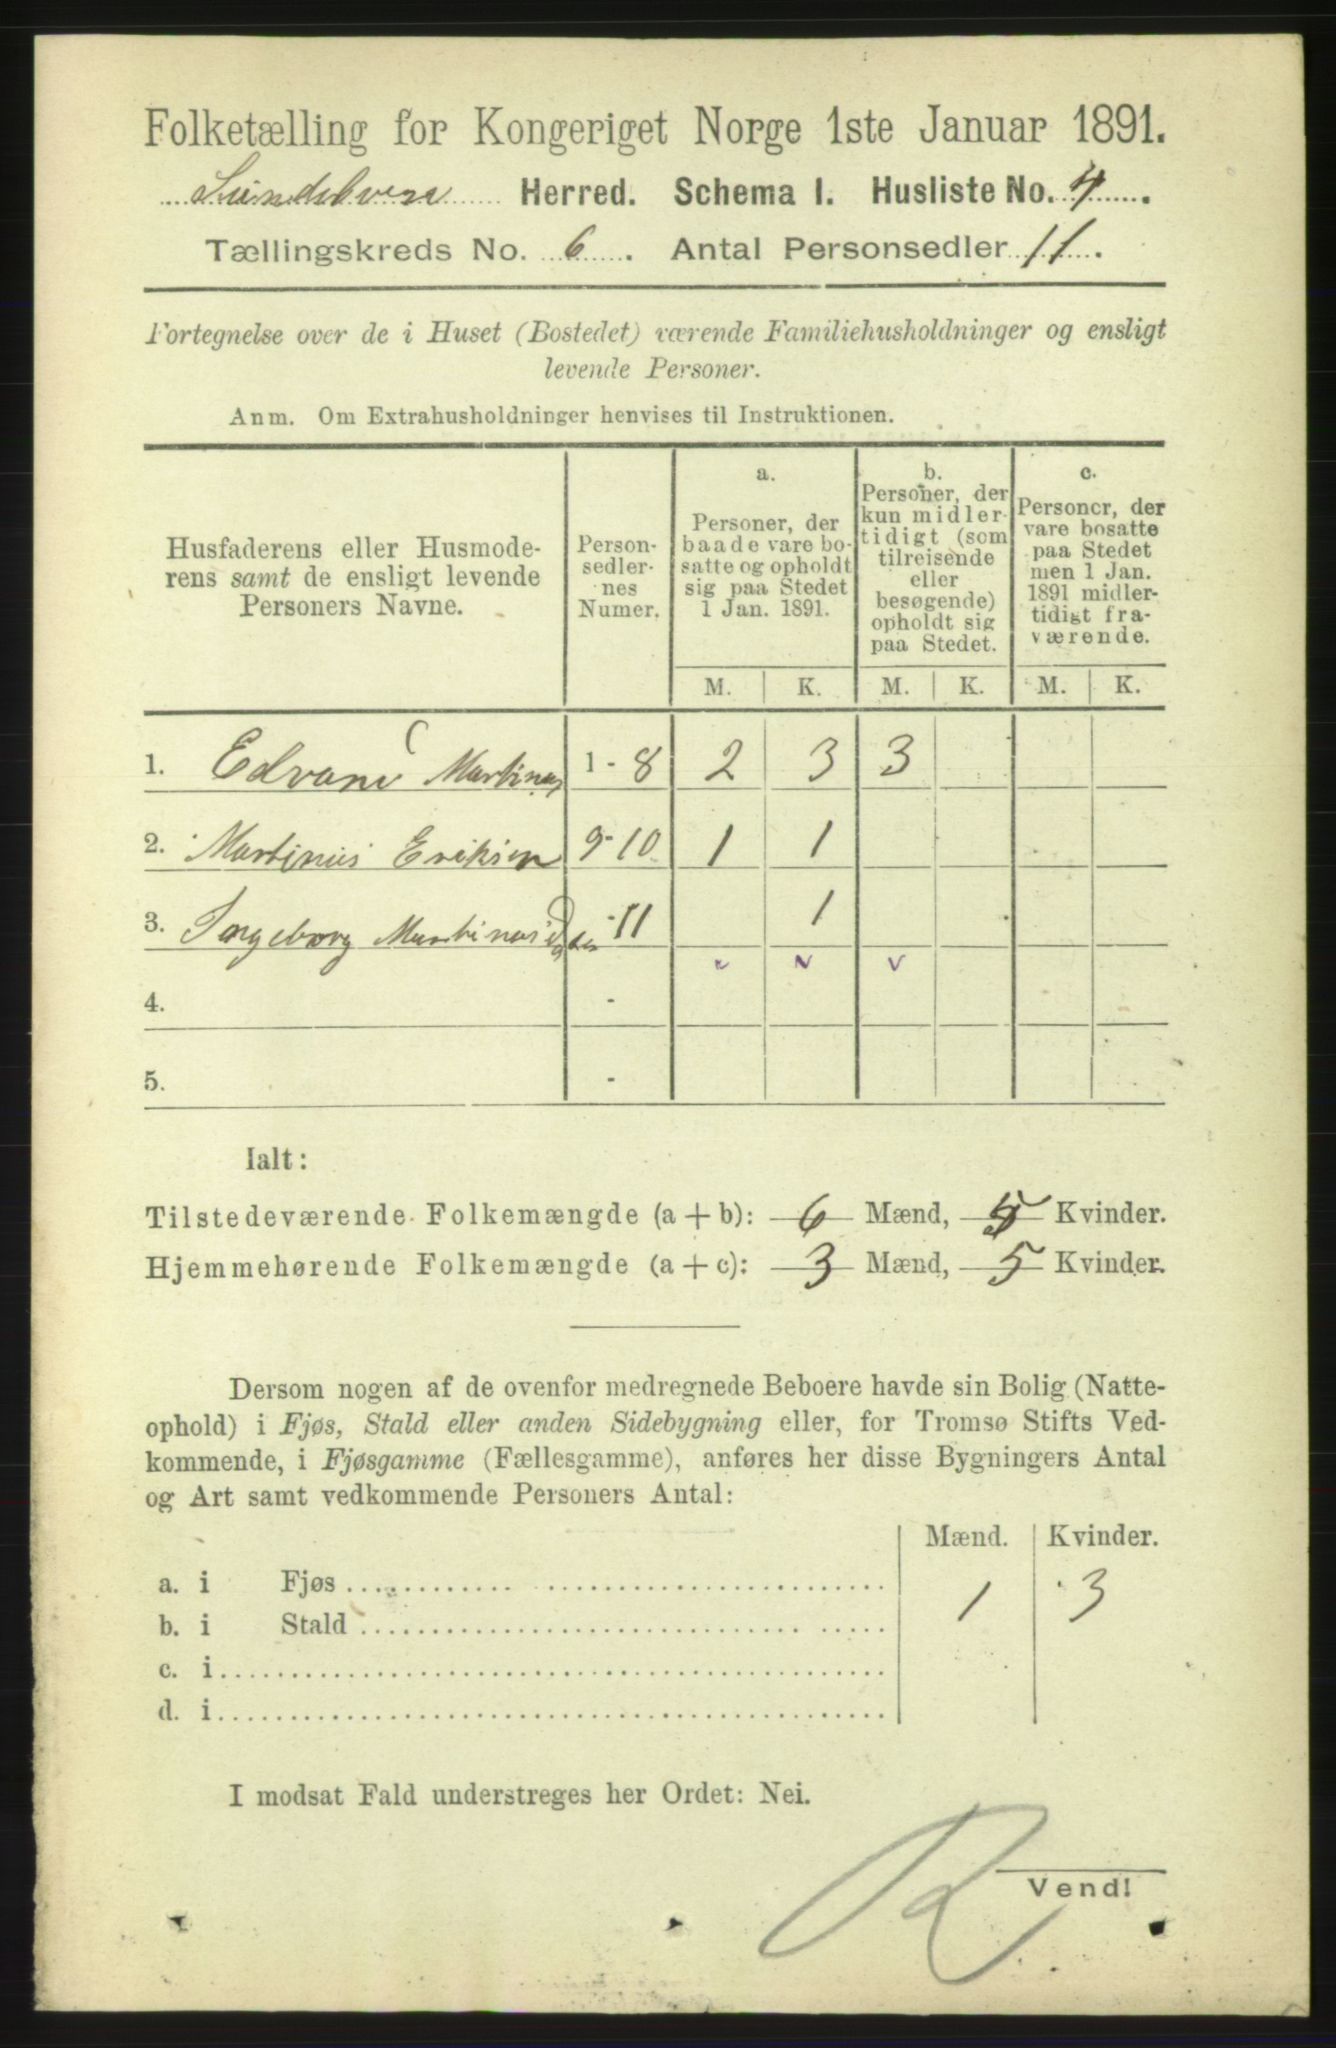 Folketælling for Kongeriget Norge 1ste Januar 1891.
Sundelven Herred. Schema I. Husliste No. 4.
Tællingskreds No. 6. Antal Personsedler 11.
Fortegnelse over de i Huset (Bostedet) værende Familiehusholdninger og ensligt
levende Personer.
Anm. Om Extrahusholdninger henvises til Instruktionen.
Husfaderens eller Husmode-
rens samt de ensligt levende
Personers Navne.
Person-
sedler-
nes
Numer.
a.
Personer, der
baade vare bo-
satte og opholdt
sig paa Stedet
1 Jan. 1891.
b.
Personer, der
kun midler-
tidigt (som
tilreisende
eller
besøgende)
opholdt sig
paa Stedet.
c.
Personer, der
vare bosatte
paa Stedet
men 1 Jan.
1891 midler-
tidigt fra-
værende.
M. K. M. K. M. K.
1. Edvard Martinus 1 - 8 2 3 3
2. Martinus Eriksen 9-10 1 1
3. Ingeborg Martinus - 11 1
4. -
5. -
Ialt:
Tilstedeværende Folkemængde (a + b): 6 Mænd, 5 Kvinder.
Hjemmehørende Folkemængde (a + c): 3 Mænd, 5 Kvinder.
Dersom nogen af de ovenfor medregnede Beboere havde sin Bolig (Natte-
ophold) i Fjøs, Stald eller anden Sidebygning eller, for Tromsø Stifts Ved-
kommende, i Fjøsgamme (Fællesgamme), anføres her disse Bygningers Antal
og Art samt vedkommende Personers Antal:
Mænd. Kvinder.
a. i Fjøs 1 3
b. i Stald
c. i
d. i
I modsat Fald understreges her Ordet: Nei.
R
Vend!